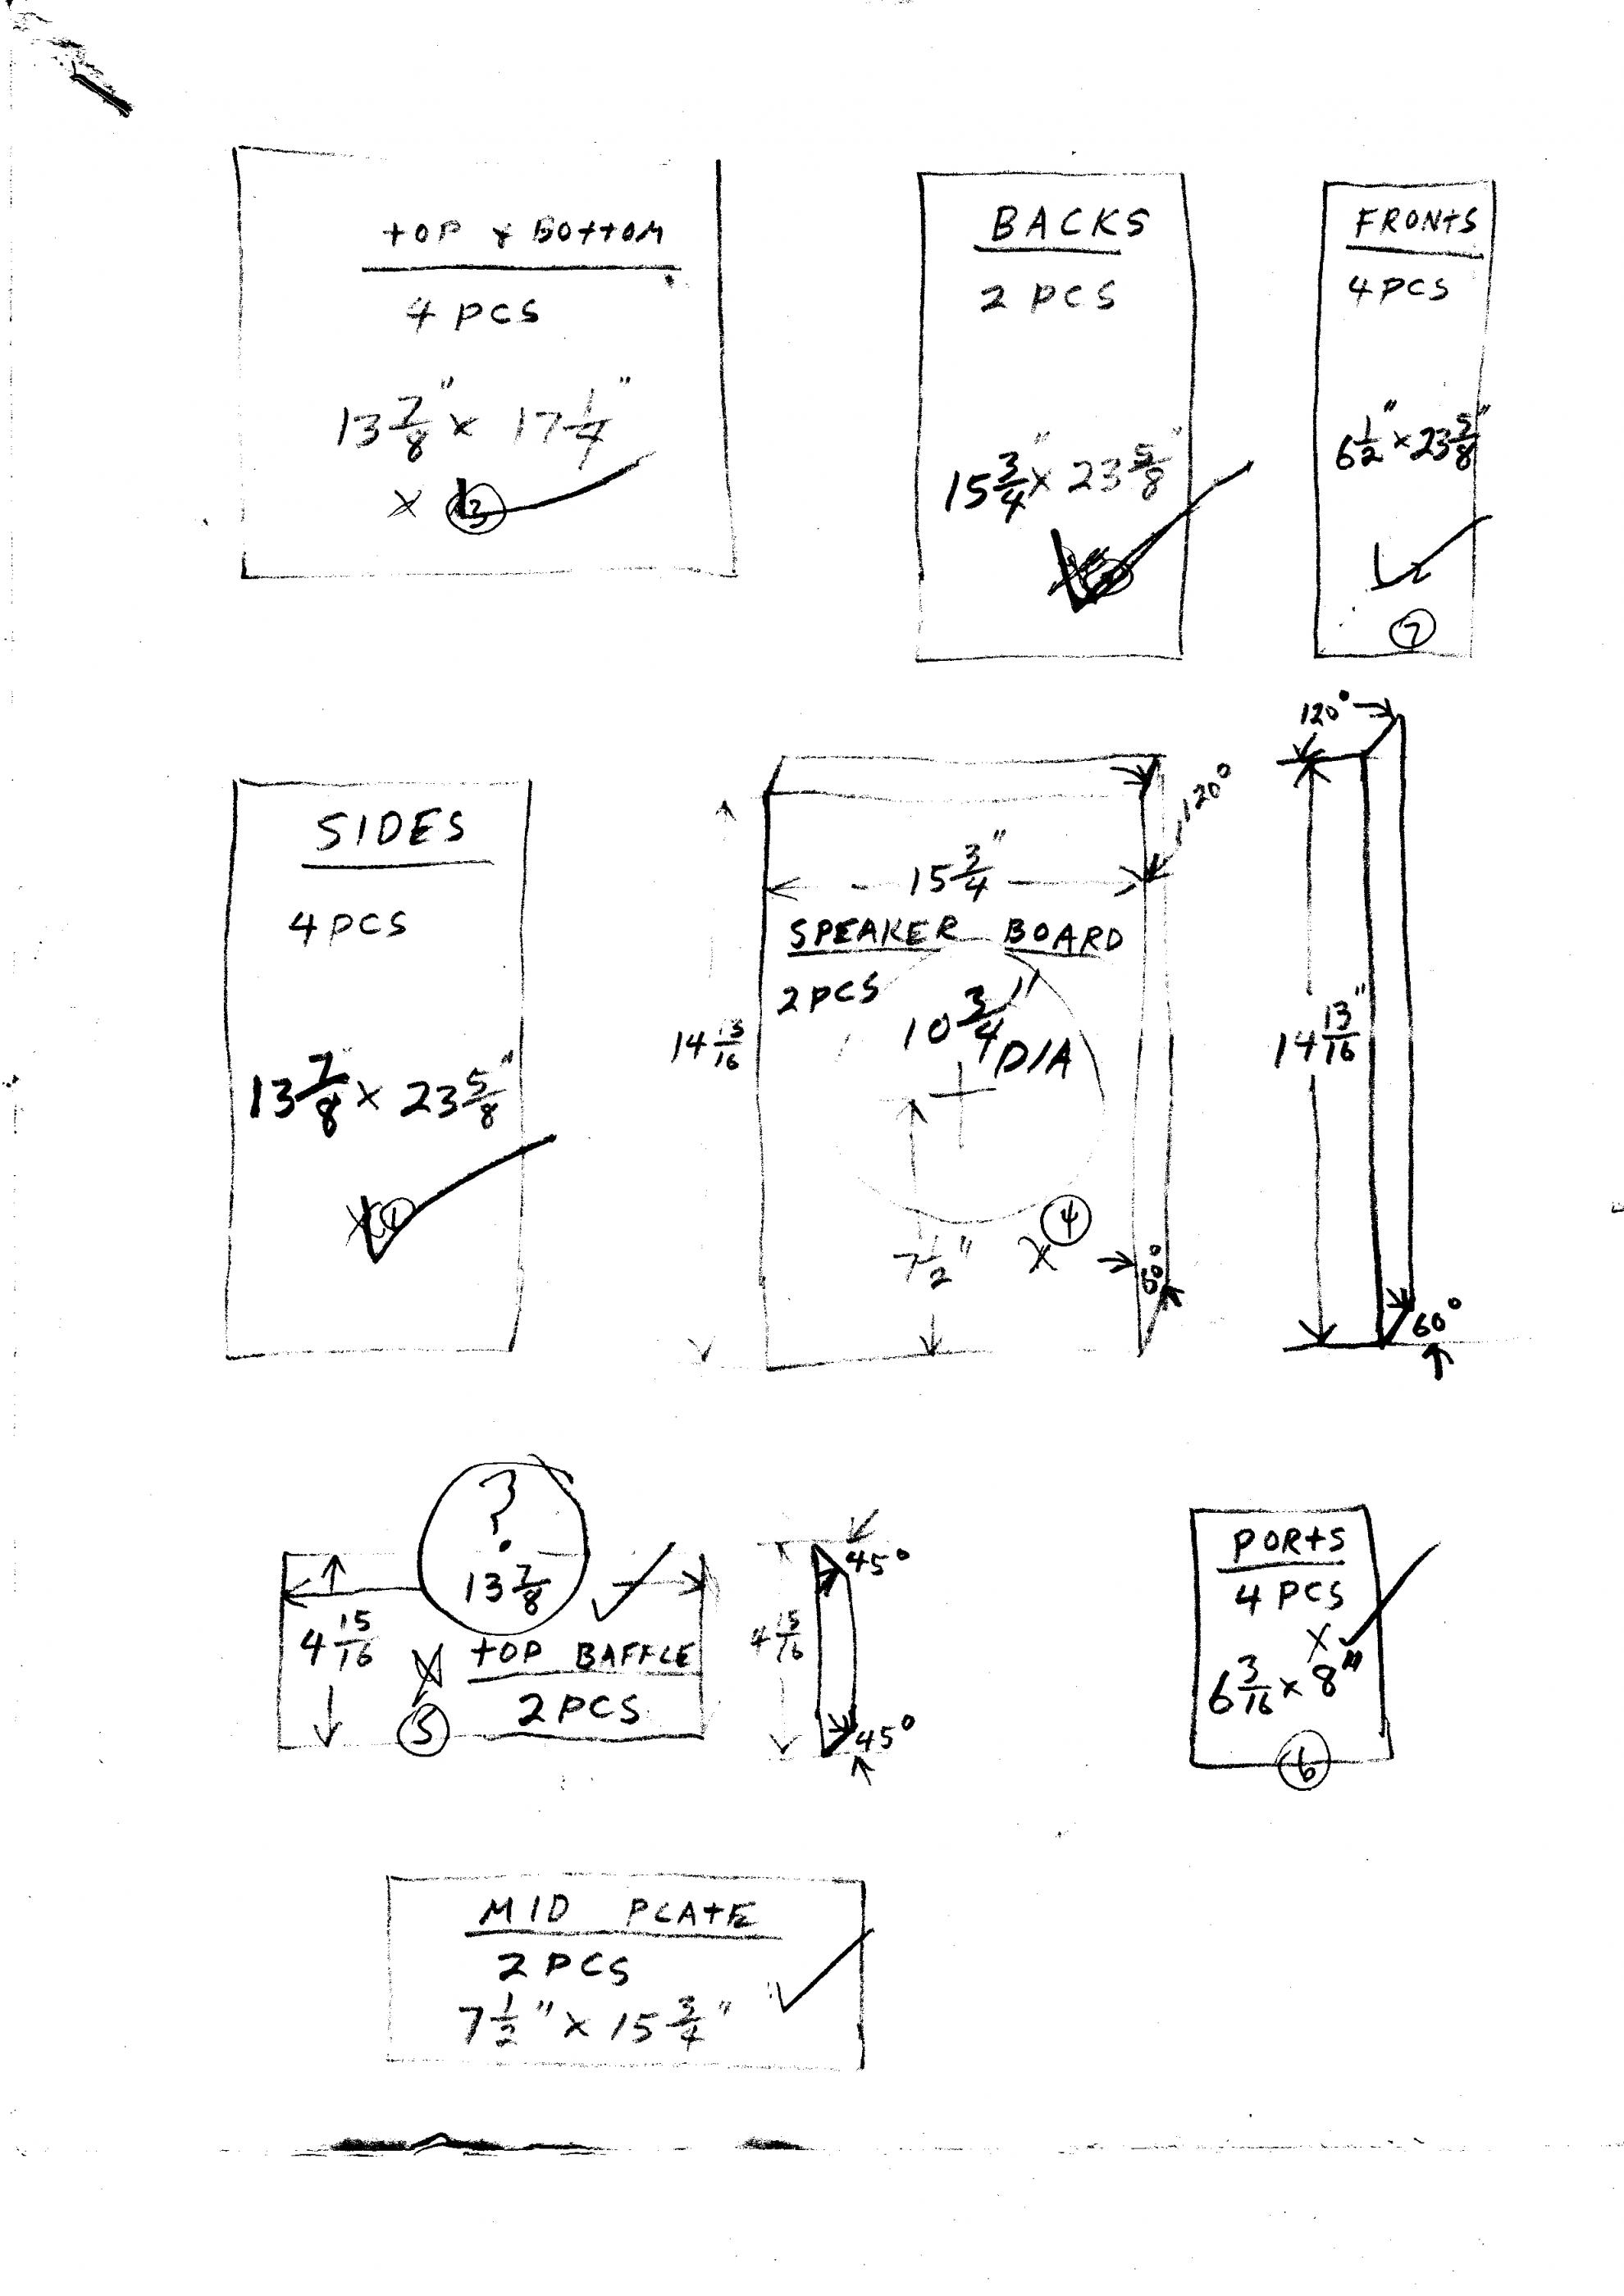 tOP & BOttOM
4 PCS
13 7/8" x 17 1/4"
x 3
BACKS
2 PCS
15 3/4" x 23 5/8"
FRONtS
4 PCS
6 1/2" x 23 5/8"
7
SIDES
4 PCS
13 7/8 x 23 5/8"
x 1
120°
15 3/4"
SPEAKER BOARD
2 PCS
10 3/4" DIA
14 13/16
7 1/2"
x 4
60°
120°
14 13/16"
60°
?
13 7/8
4 15/16
x tOP BAFFLE
5
2 PCS
45°
4 15/16
45°
PORtS
4 PCS
x
6 3/16 x 8"
6
MID PLAtE
2 PCS
7 1/2" x 15 3/4"